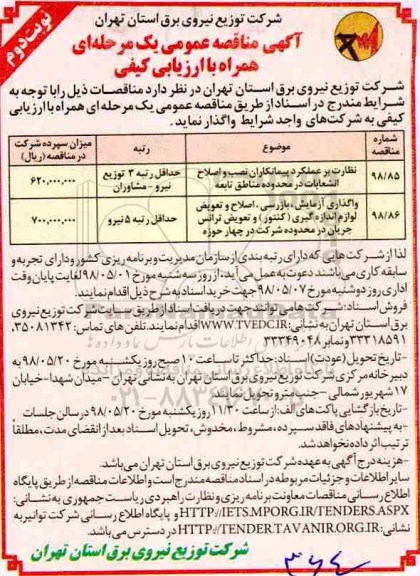 نوبت دوم
شرکت توزیع نیروی برق استان تهران
آگهی مناقصه عمومی یک مرحله‌ای
همراه با ارزیابی کیفی
شرکت توزیع نیروی برق استان تهران در نظر دارد مناقصات ذیل را با توجه به
شرایط مندرج در اسناد از طریق مناقصه عمومی یک مرحله‌ای همراه با ارزیابی
کیفی به شرکت‌های واجد شرایط واگذار نماید.
شماره مناقصه موضوع رتبه میزان سپرده شرکت در مناقصه (ریال)
۹۸/۸۵ نظارت بر عملکرد پیمانکاران نصب و اصلاح انشعابات در محدوده مناطق تابعه حداقل رتبه ۳ توزیع نیرو - مشاوران ۶۲۰,۰۰۰,۰۰۰
۹۸/۸۶ واگذاری آزمایش، بازرسی، اصلاح و تعویض لوازم اندازه گیری (کنتور) و تعویض ترانس جریان در محدوده شرکت در چهار حوزه حداقل رتبه ۵ نیرو ۷۰۰,۰۰۰,۰۰۰
لذا از شرکت هایی که دارای رتبه بندی از سازمان مدیریت و برنامه ریزی کشور و دارای تجربه و
سابقه کاری می‌باشند دعوت به عمل می‌آید، از روز سه شنبه مورخ ۹۸/۰۵/۰۱ لغایت پایان وقت
اداری روز دوشنبه مورخ ۹۸/۰۵/۰۷ جهت خرید اسناد به شرح ذیل اقدام نمایند.
فروش اسناد: شرکت هایی توانند جهت دریافت اسناد از طریق سایت شرکت توزیع نیروی
برق استان تهران به نشانی: WWW.TVEDC.IR اقدام نمایند. تلفن های تماس: ۳۵۰۸۱۳۴۲،
۳۳۳۱۸۵۹۱ و نمابر ۳۳۳۴۹۰۴۸
-تاریخ تحویل (عودت) اسناد: حداکثر تا ساعت ۱۰ صبح روز یکشنبه مورخ ۹۸/۰۵/۲۰ به
دبیرخانه مرکزی شرکت توزیع نیروی برق استان تهران به نشانی تهران - میدان شهدا - خیابان
۱۷ شهریور شمالی - جنب مترو تحویل نمایند.
-تاریخ بازگشایی پاکت های الف: از ساعت ۱۱/۳۰ روز یکشنبه مورخ ۹۸/۰۵/۲۰ در سالن جلسات
-به پیشنهادهای فاقد سپرده، مشروط، مخدوش، تحویل اسناد بعد از انقضای مدت، مطلقاً
ترتیب اثر داده نخواهد شد.
-هزینه درج آگهی به عهده شرکت توزیع نیروی برق استان تهران می‌باشد.
سایر اطلاعات و جزئیات مربوطه در اسناد مناقصه مندرج است و اطلاعات مناقصه از طریق پایگاه
اطلاع رسانی مناقصات معاونت برنامه ریزی و نظارت راهبردی ریاست جمهوری به نشانی:
HTTP://IETS.MPORG.IR/TENDERS.ASPX و پایگاه اطلاع رسانی شرکت توانیر به
نشانی: HTTP://TENDER.TAVANIR.ORG.IR در دسترس می‌باشد.
شرکت توزیع نیروی برق استان تهران
۳۶۴